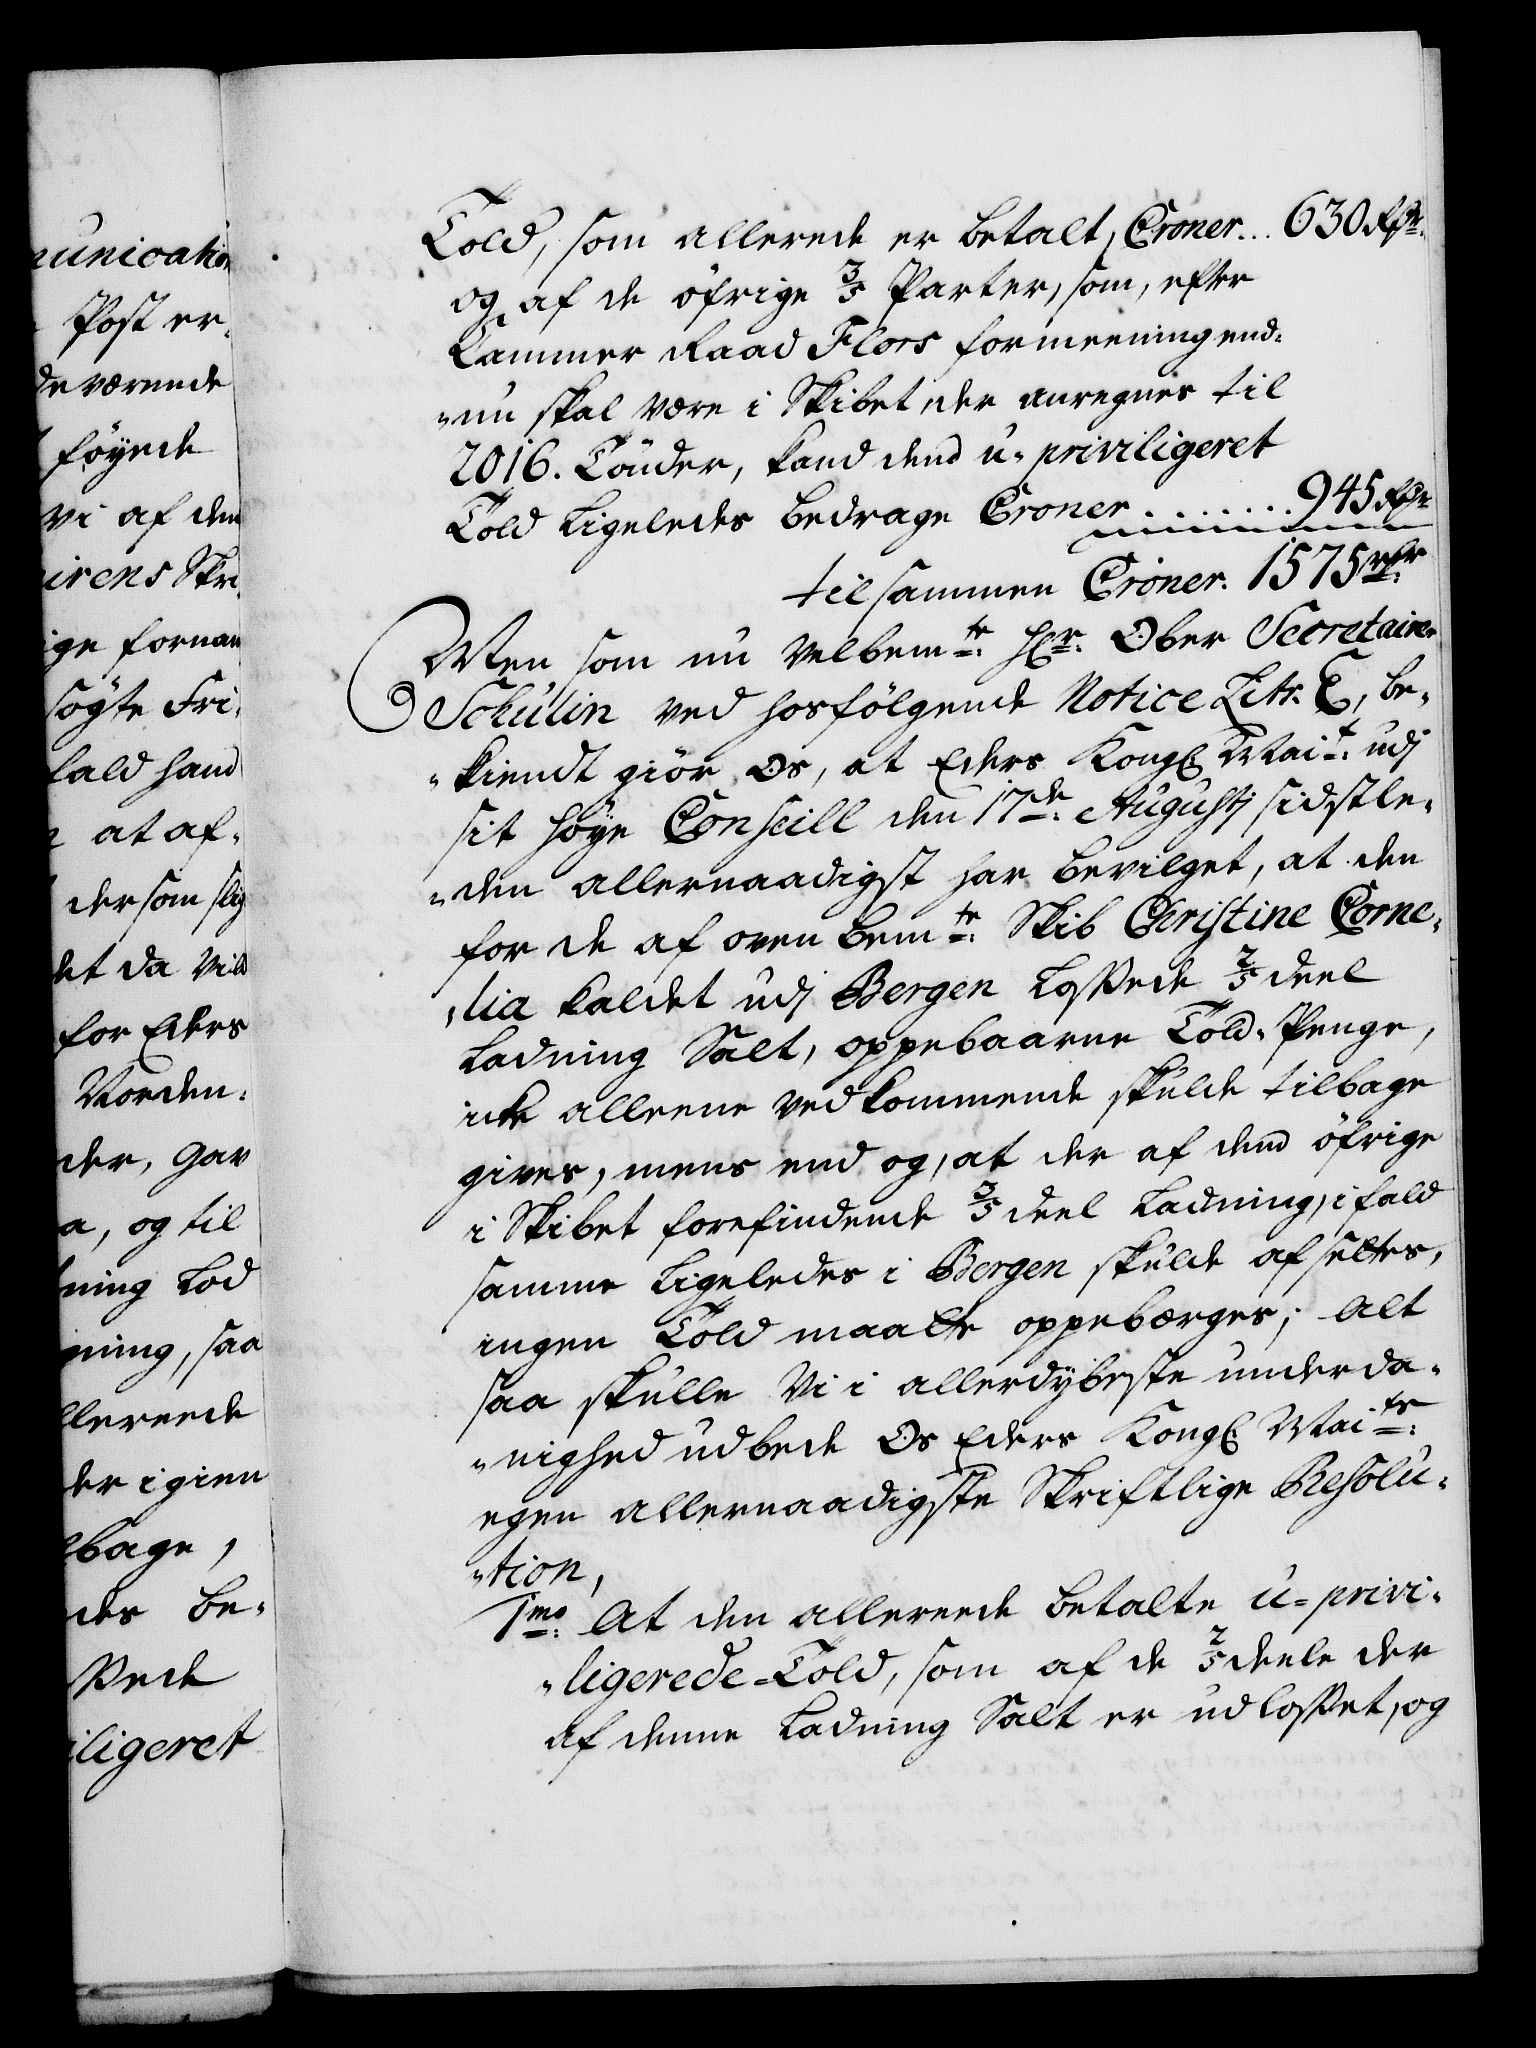 unication
Post er,
de værende
föyede
vi af den
irens Skri,
ige fornan
søgte Fri,
fald hand
at af,
dersom slig
det da vild
for Eders
Norden,
der, gav
a, og til
ning Lod
gning, saa
llereede
der igien
lbage,
des be,
Skede
iligeret
Told, som allerede er betalt, Croner... 630 Rdr.
og af de öfrige 3/5 Parter, som, efter
Cammer Raad Flors formeening end,
„nu skal være i Skibet, der anregnes til
2016. Tönder, kand dend u-priviligeret
Told ligeledes bedrage Croner ....... 945 Rdr
tilsammen Croner. 1575 rdr
Men som nu velbemte: Hr: Ober Secretairer
Schulin ved hosfölgende Notice Litr. C, be,
„kiendt giör Os, at Eders Kongl Mait: udj
sit höye Conseill den 17de: Augustj sidstle,
„den allernaadigst har bevilget, at den
for de af oven bemte: Skib Christine Corne,
„lia kaldet udj Bergen lossede 2/5 deel
Ladning Salt, oppebaarne Told-Penge,
icke alleene vedkommende skulde tilbage
gives, mens end og, at der af dend öfrige
i Skibet forefindende 3/5 deel Ladning, i fald
samme ligeledes i Bergen skulde afsættes,
ingen Told maatte oppebærges; Alt
saa skulle Vi i allerdybeste underda,
„nighed udbede Os Eders Kongl Maits:
egen allernaadigste Skriftlige Resolu,
„tion,
1mo: At den allereede betalte u-privi,
„ligerede-Told, som af de 2/5 deele der
af denne Ladning Salt er udlosset, og